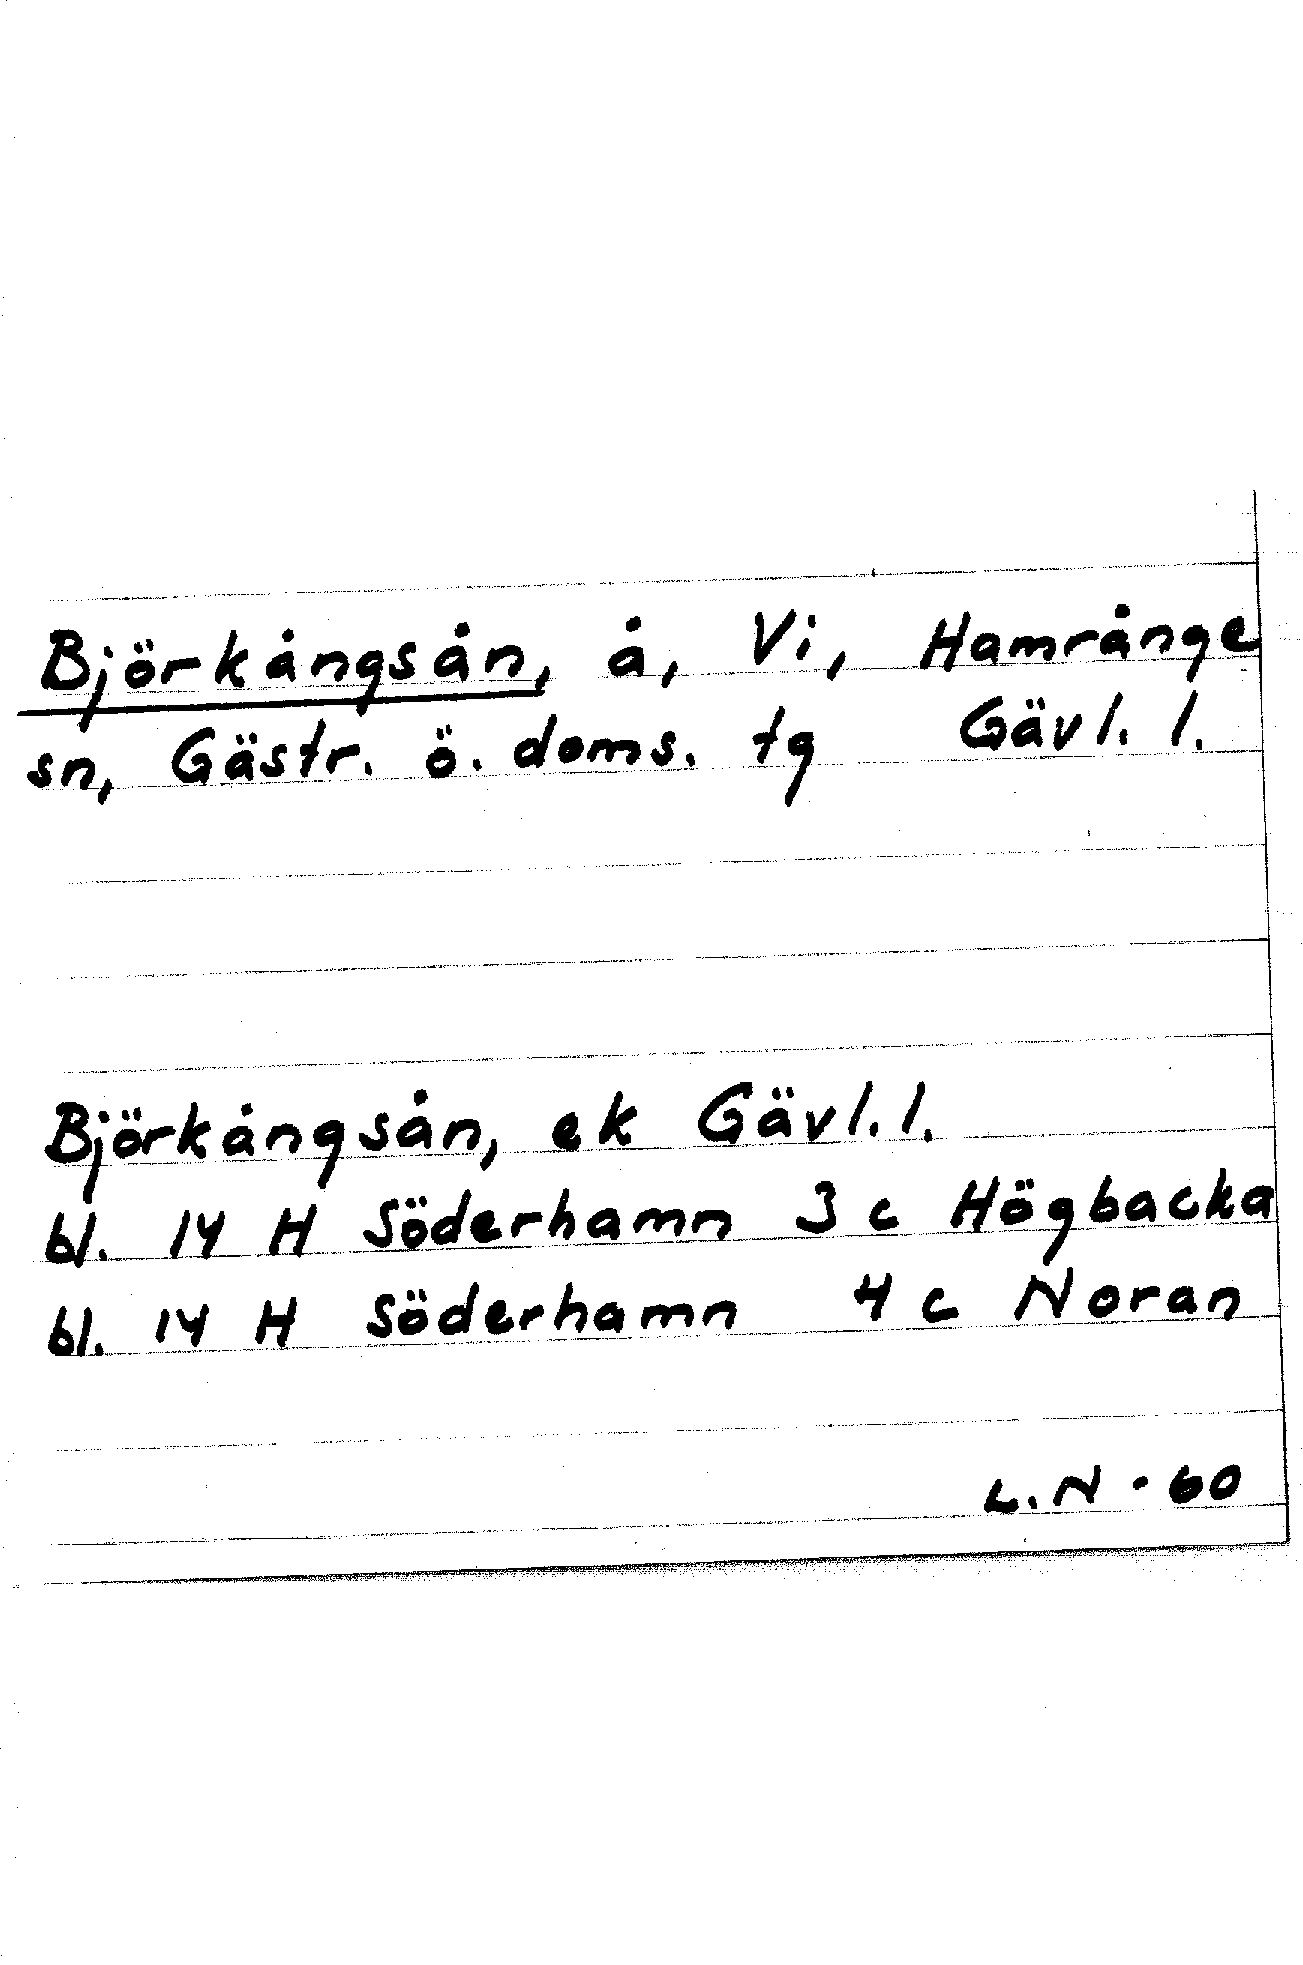 Björkångsån, å, Vi, Hamrånge
sn, Gästr. ö. doms. tg Gävl. l.
Björkångsån, ek Gävl. l.
bl. 14 H Söderhamn 3 c Högbacka
bl. 14 H Söderhamn 4 c Noran
L. N - 60